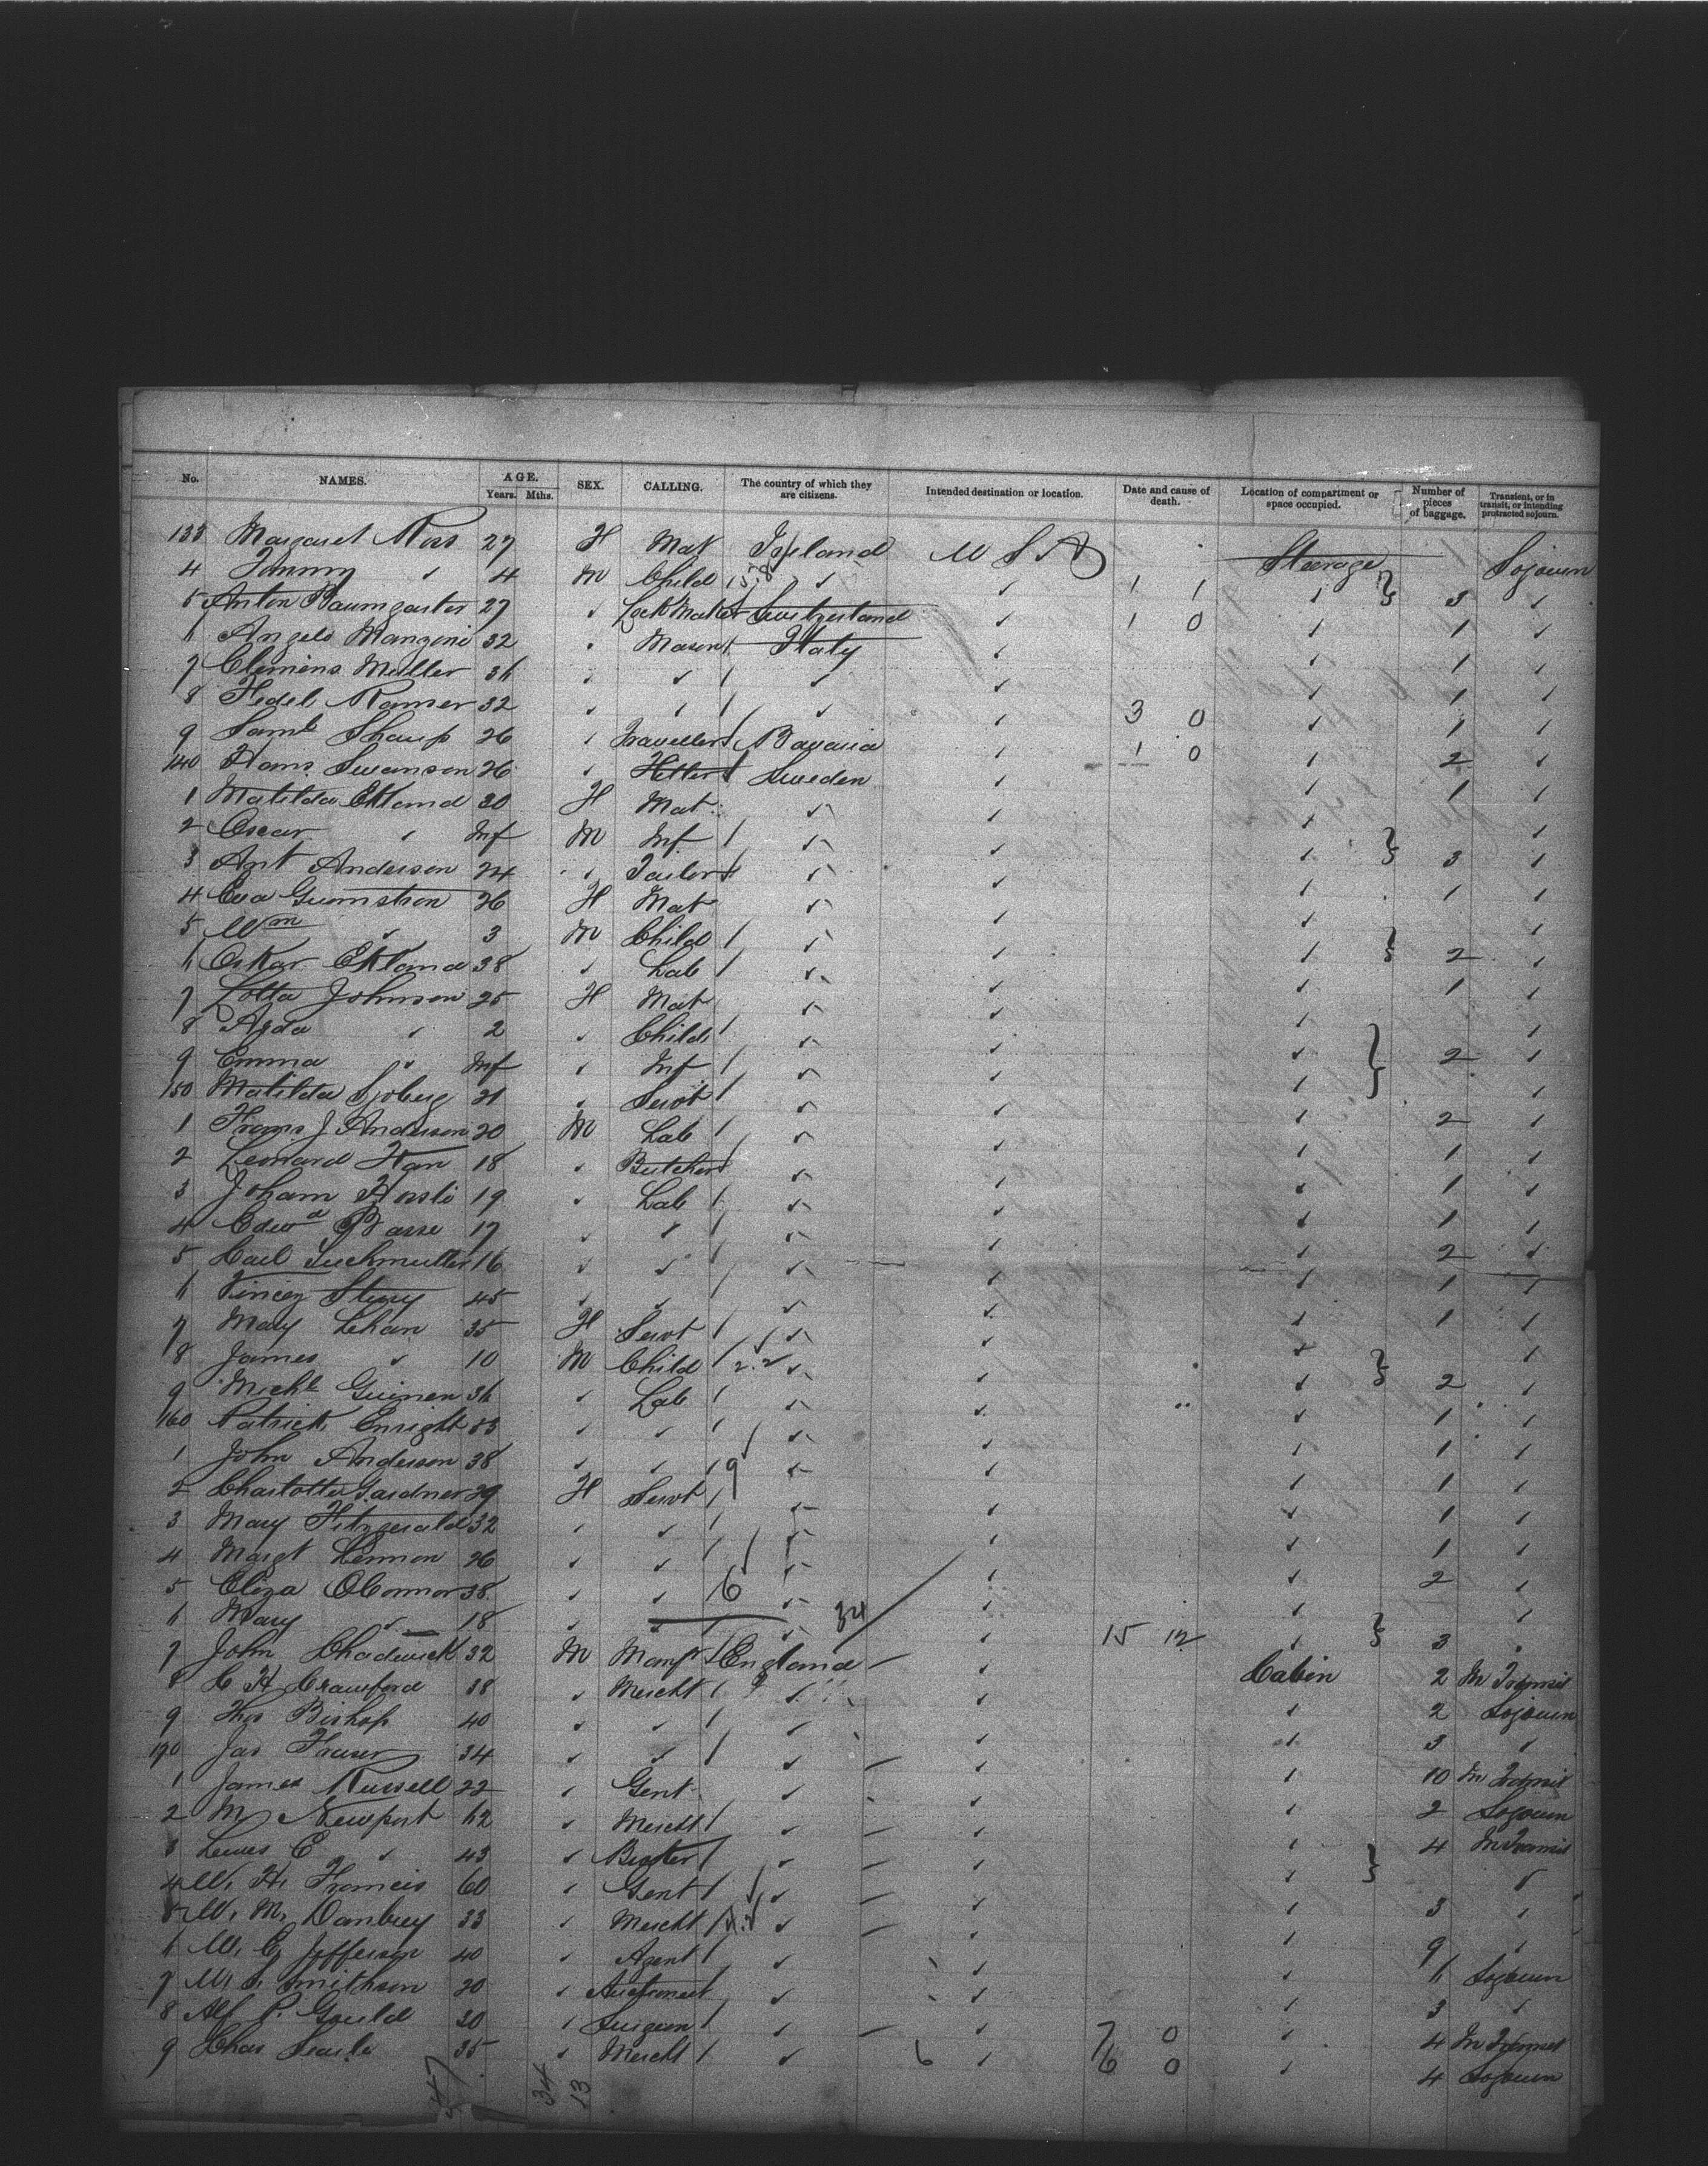 No. NAMES. AGE. Years. Mths. SEX. CALLING. The country of which they are citizens. Intended destination or location. Date and cause of death. Location of compartment or space occupied. Number of pieces of baggage. Transient, or in transit, or intending protracted sojourn.
133 Margaret Ross 27 F Mat Ireland U S A Steerage Sojourn
4 Tommy ✓ 4 M Child ✓ ✓ 1 1 ✓ 3 ✓
5 Anton Baumgarter 27 ✓ Lock Maker Switzerland ✓ 1 0 ✓ 1 ✓
6 Angelo Manzoni 32 ✓ Mason Italy ✓ ✓ 1 ✓
7 Clemens Muller 36 ✓ ✓ ✓ ✓ ✓ 1 ✓
8 Fedel Ramer 32 ✓ ✓ ✓ ✓ 3 0 ✓ 1 ✓
9 Saml Sharp 26 ✓ Traveller Bavaria ✓ 1 0 ✓ 2 ✓
140 Hans Swanson 26 ✓ Sweden ✓ ✓ 1 ✓
1 Matilda Eklund 30 F Mat ✓ ✓ ✓ ✓
2 Oscar ✓ Inf M Inf ✓ ✓ ✓ 3 ✓
3 Ant Anderson 24 ✓ Tailor ✓ ✓ ✓ 1 ✓
4 Eva 26 F Mat ✓ ✓ ✓ ✓
5 Wm ✓ 3 M Child ✓ ✓ ✓ 2 ✓
6 Oskar Eklund 38 ✓ Lab ✓ ✓ ✓ 1 ✓
7 Lotta Johnson 25 F Mat ✓ ✓ ✓ ✓
8 Agda ✓ 2 ✓ Child ✓ ✓ ✓ 2 ✓
9 Emma ✓ Inf ✓ Inf ✓ ✓ ✓ ✓
150 Matilda Sjoberg 21 ✓ Servt ✓ ✓ ✓ 2 ✓
1 Frans J Anderson 20 M Lab ✓ ✓ ✓ 1 ✓
2 Leonard 18 ✓ Butcher ✓ ✓ ✓ 1 ✓
3 Johann 19 ✓ Lab ✓ ✓ ✓ 1 ✓
4 Edwd Basse 17 ✓ ✓ ✓ ✓ ✓ 2 ✓
5 Carl 16 ✓ ✓ ✓ ✓ ✓ 1 ✓
6 45 ✓ ✓ ✓ ✓ ✓ 1 ✓
7 Mary Lehan 35 F Servt ✓ ✓ ✓ ✓
8 James ✓ 10 M Child 2.2 ✓ ✓ ✓ 2 ✓
9 Michl Guinen 36 ✓ Lab ✓ ✓ ✓ 1 ✓
160 Patrick Enright 33 ✓ ✓ ✓ ✓ ✓ 1 ✓
1 John Anderson 38 ✓ ✓ 9 ✓ ✓ ✓ 1 ✓
2 Charlotte Gardner 29 F Servt ✓ ✓ ✓ 1 ✓
3 Mary Fitzgerald 32 ✓ ✓ ✓ ✓ ✓ 1 ✓
4 Margt Lennon 26 ✓ ✓ ✓ ✓ ✓ 2 ✓
5 Eliza OConnor 38 ✓ ✓ 6 ✓ ✓ ✓ ✓
6 Mary ✓ 18 ✓ 34 ✓ 15 12 ✓ 3 ✓
7 John Chadwick 32 M Manfr England ✓ Cabin 2 In Transit
8 C H Crawford 38 ✓ Mercht ✓ ✓ ✓ 2 Sojourn
9 Thos Bishop 40 ✓ ✓ ✓ ✓ ✓ 3 ✓
170 Jas Fraser 34 ✓ ✓ ✓ ✓ ✓ 10 In Transit
1 James Russell 22 ✓ Gent ✓ ✓ ✓ 2 Sojourn
2 M Newport 62 ✓ Mercht ✓ ✓ ✓ 4 In Transit
3 Lewis E ✓ 43 ✓ ✓ ✓ ✓ ✓
4 W. H. Francis 60 ✓ Gent ✓ ✓ ✓ 3 ✓
5 W. M. Danbey 33 ✓ Mercht ✓ ✓ ✓ 9 ✓
6 W. G. Jefferson 40 ✓ Agent ✓ ✓ ✓ 6 Sojourn
7 W. S. Smithson 20 ✓ ✓ ✓ ✓ 3 ✓
8 Alf P. Gould 30 ✓ Surgeon ✓ ✓ 7 0 ✓ 4 In Transit
9 Chas Searle 35 ✓ Mercht ✓ 6 ✓ 6 0 ✓ 4 Sojourn
47 34 13